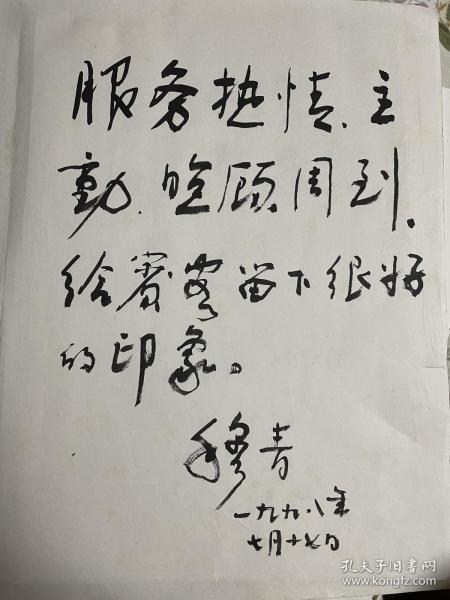 服务热情、主
动、照顾周到。
给宾客留下很好
的印象。
穆青
一九九八年
七月十七日
孔夫子旧书网
www.kongfz.com